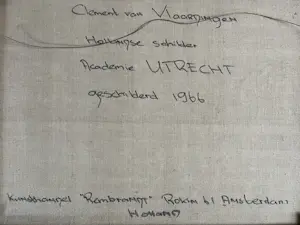 Clement van Vlaardingen
Hollandse schilder
Academie UTRECHT
geschilderd 1966
Kunsthandel "Rembrandt" Rokin 61 Amsterdam
Holland